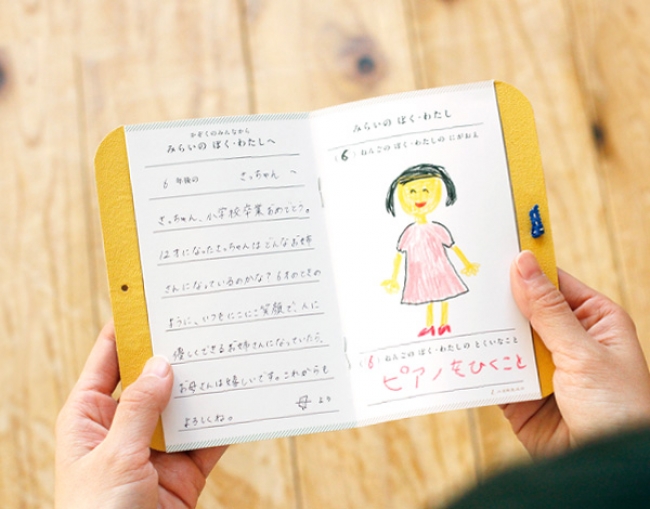 かぞくのみんなから
みらいの ぼく・わたしへ
6 年後の さっちゃん へ
さっちゃん、小学校卒業おめでとう。
12才になったさっちゃんはどんなお姉
さんになっているのかな?6才のときの
ように、いつもにこにこ笑顔で、人に
優しくできるお姉さんになっていたら、
お母さんは嬉しいです。これからも
よろしくね。 母 より
みらいの ぼく・わたし
(6) ねんごの ぼく・わたしの にがおえ
(6) ねんごの ぼく・わたしの とくいなこと
ピアノをひくこと